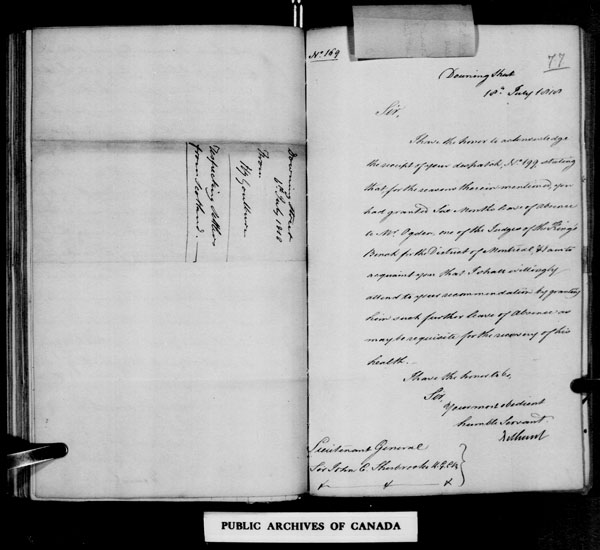 Downing Street
6th July 1818
From
Hy Goulburn
Respecting Settlers
from Scotland.
No 169
77
Downing Street
18th July 1818
Sir,
I have the honor to acknowledge
the receipt of your despatch, No 199 stating
that for the reasons therein mentioned, you
had granted Six Months leave of Absence
to Mr Ogden, one of the Judges of the King's
Bench for the District of Montreal, & I am to
acquaint you that I shall willingly
attend to your recommendation by granting
him such further leave of Absence as
may be requisite for the recovery of his
health.
I have the honor to be,
Sir,
Your most obedient
humble Servant
Bathurst
Lieutenant General
Sir John C. Sherbrooke K.G.C.B.
&c &c &c
PUBLIC ARCHIVES OF CANADA